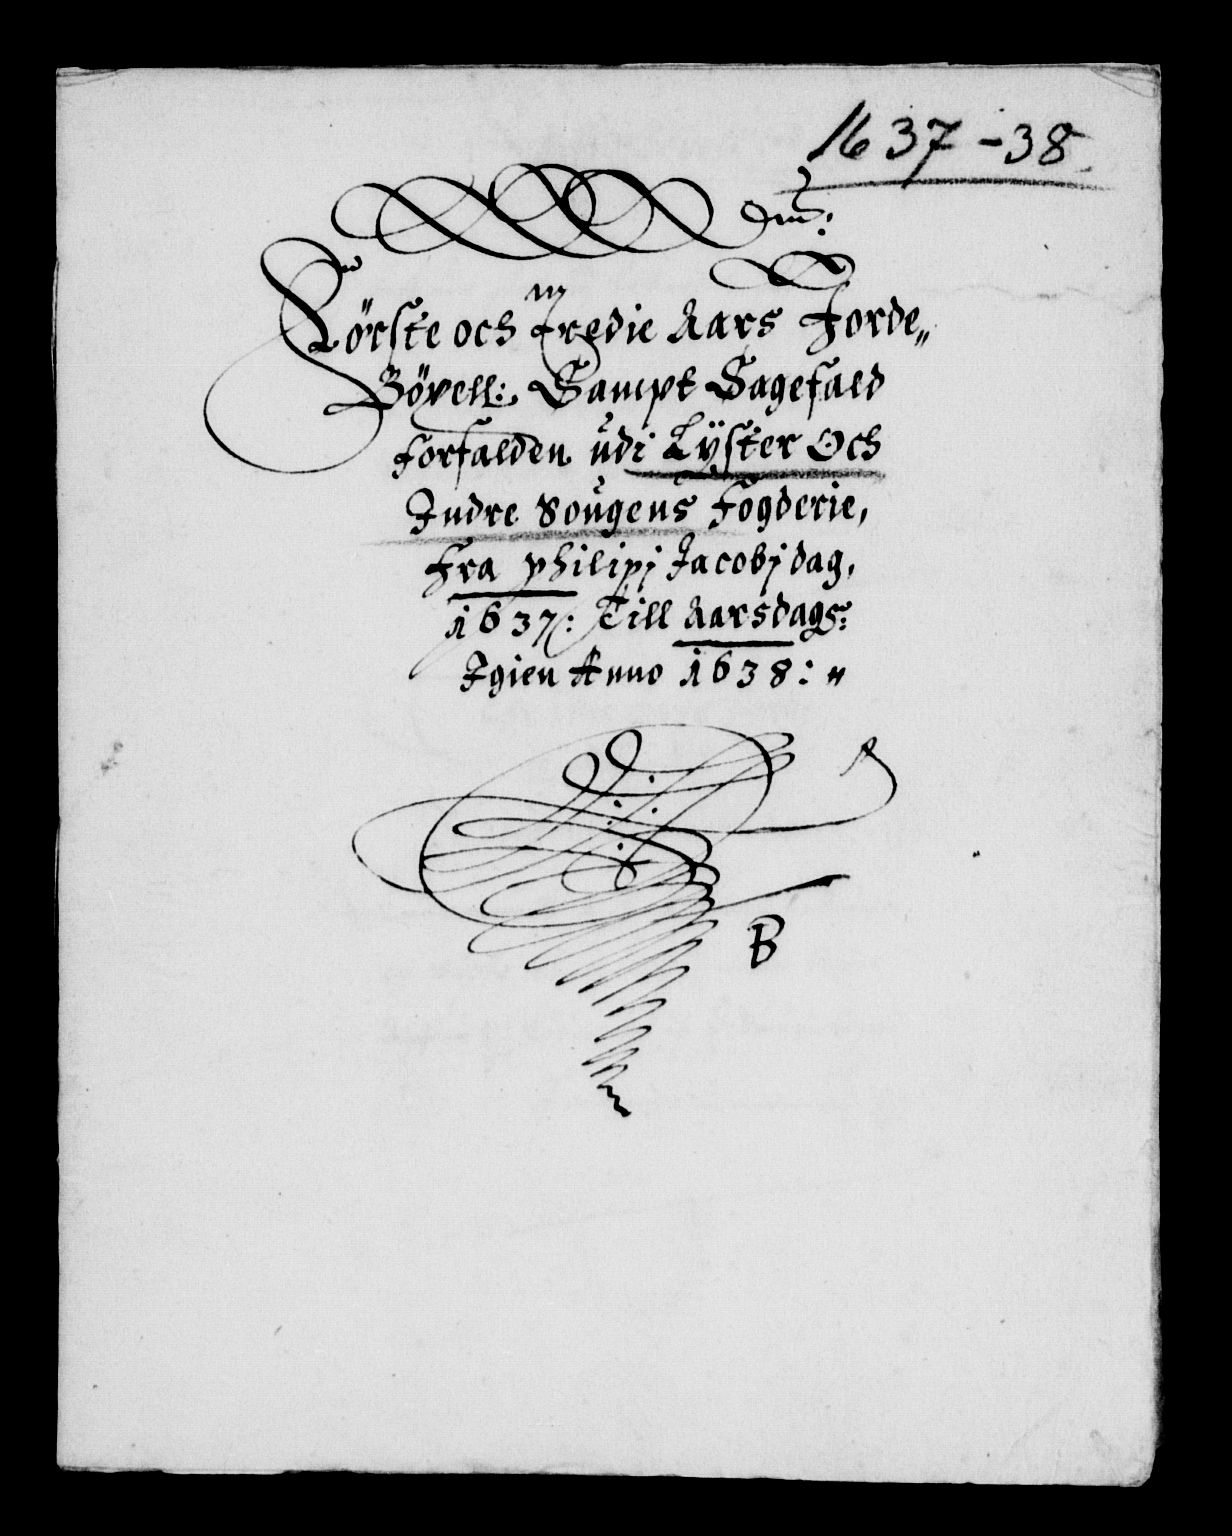 1637-38
Förste och Tredie Aars Forde„
Böxell: Sampt Sagefald
forfalden udi Lÿster Och
Indre Sougens Fogderie,
Fra philipj Jacobj dag,
1637: Till Aarsdags:
Igien Anno 1638: „
B